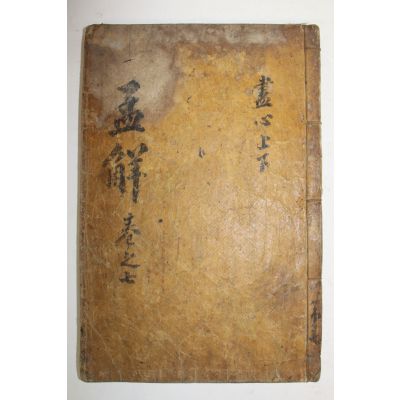 盡心上下
孟解
卷之七